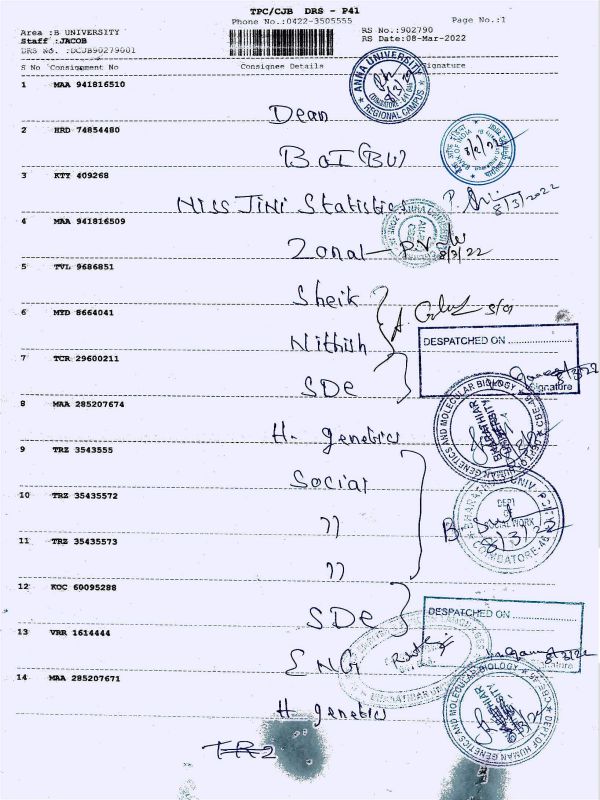 TPC/CJB DRS - P41
Phone No.:0422-3505555
Page No.:1
Area :B UNIVERSITY
RS No.:902790
Staff :JACOB
RS Date:08-Mar-2022
DRS No. :DCJB90279001
S No Consignment No Consignee Details Signature
1 MAA 941816510
Dean
ANNA UNIVERSITY
REGIONAL CAMPUS
2 HRD 74854480
BOI (BU)
BANK OF INDIA
3 KTY 409268
Miss Jini Statistics
8/3/2022
4 MAA 941816509
Zonal
8/3/22
5 TVL 9686851
Sheik
6 MYD 8664041
Nithish
7 TCR 29600211
SDE
DESPATCHED ON
Signature
8 MAA 285207674
H. genetics
DEPT OF HUMAN GENETICS AND MOLECULAR BIOLOGY
BHARATHIAR UNIVERSITY
CBE-46
9 TRZ 3543555
Social
10 TRZ 35435572
"
DEPT OF SOCIAL WORK
COIMBATORE-46
8/3/22
11 TRZ 35435573
"
12 KOC 60095288
SDE
DESPATCHED ON
13 VRR 1614444
ENG
14 MAA 285207671
H genetics
DEPT OF HUMAN GENETICS AND MOLECULAR BIOLOGY
BHARATHIAR UNIVERSITY
CBE-46